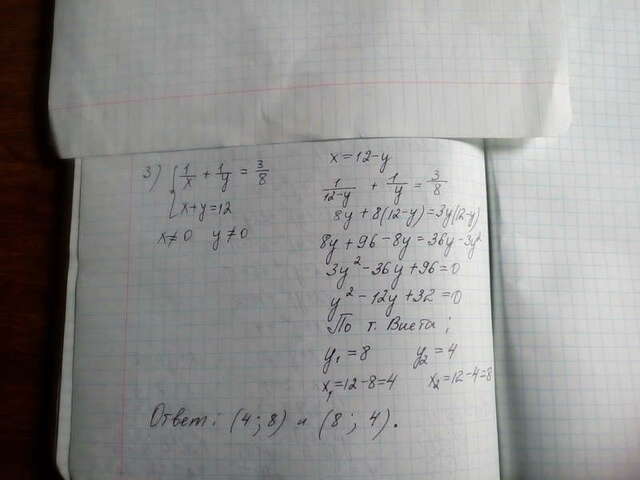 3) { 1/x + 1/y = 3/8
x+y=12
x≠0 y≠0
x=12-y
1/12-y + 1/y = 3/8
8y + 8(12-y)=3y(12-y)
8y+96-8y=36y-3y²
3y²-36y+96=0
y²-12y+32=0
По т. Виета;
y₁=8 y₂=4
x₁=12-8=4 x₂=12-4=8
Ответ: (4;8) и (8; 4).